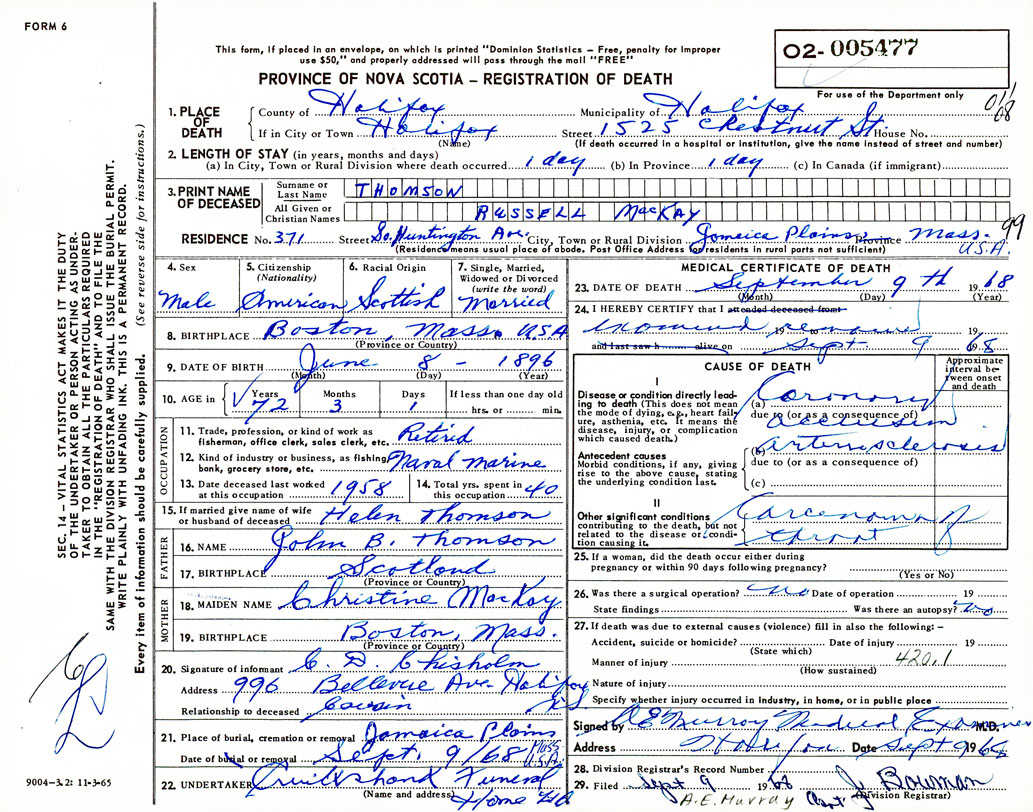 FORM 6
This form, if placed in an envelope, on which is printed "Dominion Statistics – Free, penalty for improper
use $50," and properly addressed will pass through the mail "FREE"
PROVINCE OF NOVA SCOTIA – REGISTRATION OF DEATH
O2- 005477
For use of the Department only
1. PLACE OF DEATH
County of Halifax Municipality of Halifax
If in City or Town Halifax Street 1525 Chestnut St House No.
(Name) (If death occurred in a hospital or institution, give the name instead of street and number)
2. LENGTH OF STAY (in years, months and days)
(a) In City, Town or Rural Division where death occurred 1 day (b) In Province 1 day (c) In Canada (if immigrant)
3. PRINT NAME OF DECEASED
Surname or Last Name THOMSON
All Given or Christian Names RUSSELL MacKAY
RESIDENCE No. 371 Street So. Huntington Ave. City, Town or Rural Division Jamaica Plains Province Mass. U.S.A.
99
(Residence means usual place of abode. Post Office Address for residents in rural parts not sufficient)
4. Sex
Male
5. Citizenship (Nationality)
American
6. Racial Origin
Scottish
7. Single, Married, Widowed or Divorced (write the word)
Married
8. BIRTHPLACE Boston, Mass. U.S.A
(Province or Country)
9. DATE OF BIRTH June 8 - 1896
(Month) (Day) (Year)
10. AGE in Years 72 Months 3 Days 1 If less than one day old hrs. or min.
OCCUPATION
11. Trade, profession or kind of work as fisherman, office clerk, sales clerk, etc. Retired
12. Kind of industry or business, as fishing, bank, grocery store, etc. Naval marine
13. Date deceased last worked at this occupation 1958
14. Total yrs. spent in this occupation 40
15. If married give name of wife or husband of deceased Helen Thomson
FATHER
16. NAME John B. Thomson
17. BIRTHPLACE Scotland
(Province or Country)
MOTHER
18. MAIDEN NAME Christine MacKay
19. BIRTHPLACE Boston, Mass.
(Province or Country)
20. Signature of informant C. D. Chisholm
Address 996 Bellevue Ave. Halifax NS
Relationship to deceased Cousin
21. Place of burial, cremation or removal Jamaica Plains
Date of burial or removal Sept. 9/68 Mass U.S.A.
22. UNDERTAKER Cruikshank Funeral
(Name and address) Home
MEDICAL CERTIFICATE OF DEATH
23. DATE OF DEATH September 9th 1968
(Month) (Day) (Year)
24. I HEREBY CERTIFY that I attended deceased from
examined remains 19 to 19
and last saw h alive on Sept 9 1968
CAUSE OF DEATH
Approximate interval between onset and death
I
Disease or condition directly leading to death (This does not mean the mode of dying, e.g., heart failure, asthenia, etc. It means the disease, injury, or complication which caused death.)
(a) Coronary
due to (or as a consequence of)
occlusion
(b) arteriosclerosis
Antecedent causes
Morbid conditions, if any, giving rise to the above cause, stating the underlying condition last.
due to (or as a consequence of)
(c)
II
Other significant conditions contributing to the death, but not related to the disease or condition causing it.
Carcenoma of
throat
25. If a woman, did the death occur either during
pregnancy or within 90 days following pregnancy?
(Yes or No)
26. Was there a surgical operation? no Date of operation 19
State findings Was there an autopsy? no
27. If death was due to external causes (violence) fill in also the following: –
Accident, suicide or homicide? Date of injury 19
(State which)
Manner of injury 420.1
(How sustained)
Nature of injury
Specify whether injury occurred in industry, in home, or in public place
Signed by A E Murray Medical Examiner M.D.
Address Halifax Date Sept 9 1968
28. Division Registrar's Record Number
29. Filed Sept 9 1968 J. Bowman
A.E. Murray Division Registrar
SEC. 14 – VITAL STATISTICS ACT MAKES IT THE DUTY
OF THE UNDERTAKER OR PERSON ACTING AS UNDER-
TAKER TO OBTAIN ALL THE PARTICULARS REQUIRED
IN THE "REGISTRATION OF DEATH" AND TO FILE THE
SAME WITH THE DIVISION REGISTRAR WHO SHALL ISSUE THE BURIAL PERMIT.
WRITE PLAINLY WITH UNFADING INK. THIS IS A PERMANENT RECORD.
Every item of information should be carefully supplied. (See reverse side for instructions.)
9004-3.2: 11-3-65